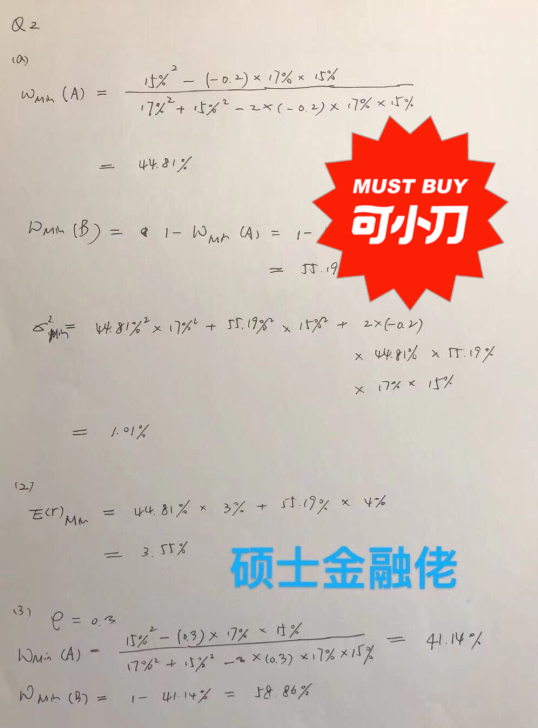 Q2
(a)
15%² - (-0.2) × 17% × 15%
W_Min (A) = 
17%² + 15%² - 2×(-0.2) × 17% × 15%
= 44.81%
MUST BUY
可小刀
W_Min (B) = 1 - W_Min (A) = 1-
= 55.19
σ²_Min = 44.81%² × 17%² + 55.19%² × 15%² + 2×(-0.2)
× 44.81% × 55.19%
× 17% × 15%
= 1.01%
(2)
E(r)_Min = 44.81% × 3% + 55.19% × 4%
= 3.55%
硕士金融佬
(3) ρ = 0.3
15%² - (0.3) × 17% × 15%
W_Min (A) = = 41.14%
17%² + 15%² - 2 × (0.3) × 17% × 15%
W_Min (B) = 1 - 41.14% = 58.86%